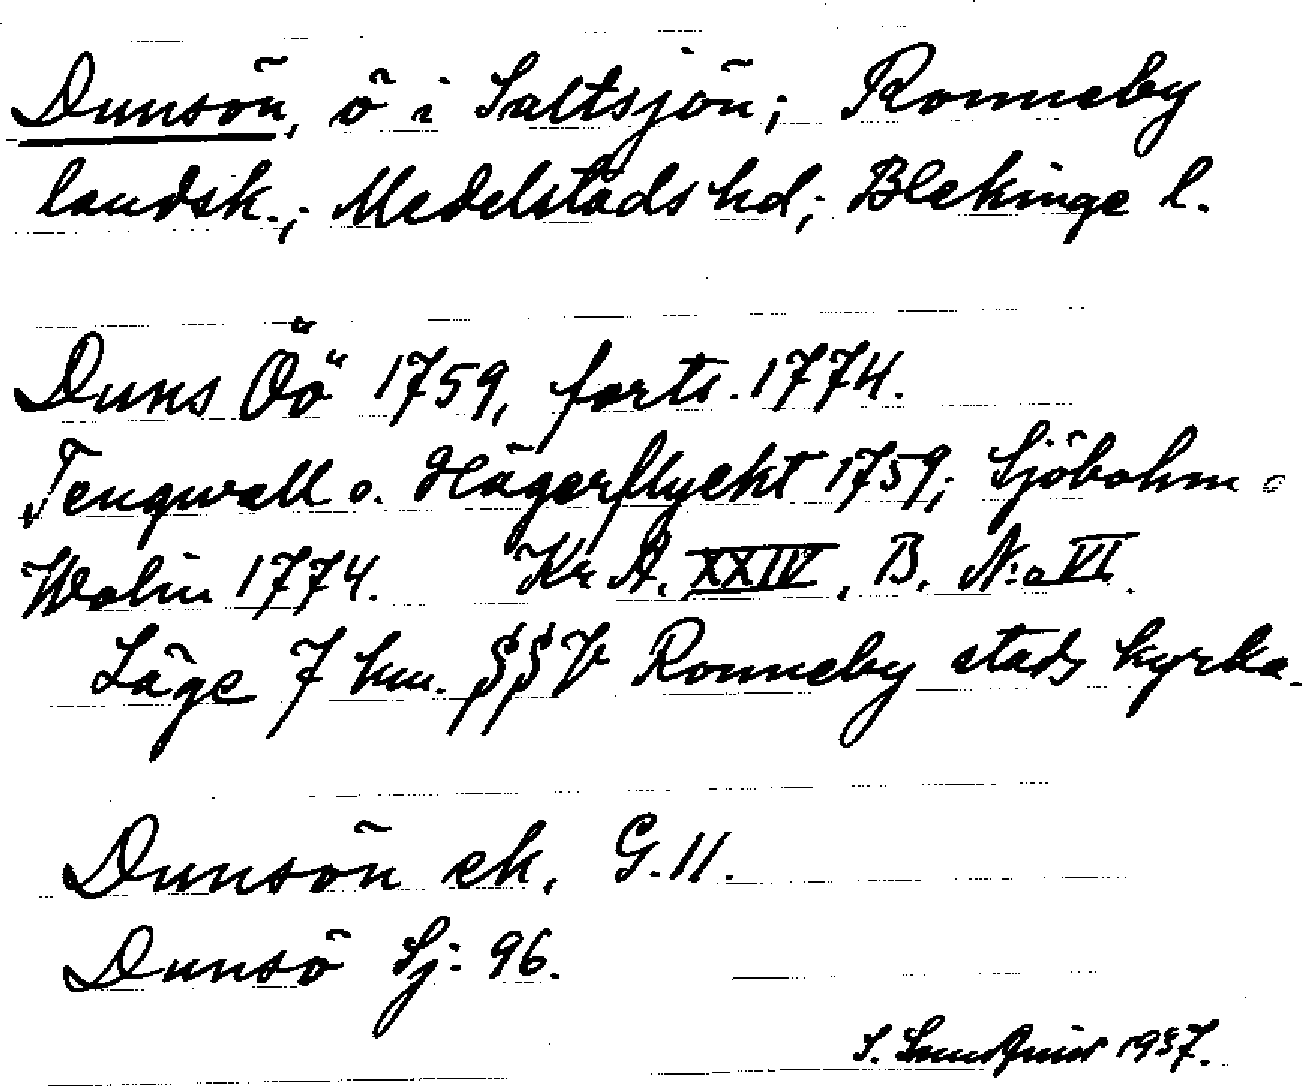 Dunsön, ö i Saltsjön; Ronneby
landsk.; Medelstads hd; Blekinge l.
Duns Öö 1759, forts. 1774.
Tengwall o. Hägerflyckt 1759; Sjöbohm o
Wolin 1774. Kr A. XXIV, B. N:o VI.
Läge 7 km. SSV Ronneby stads kyrka.
Dunsön ek. G. 11.
Dunsö Sj: 96.
S. 1937.